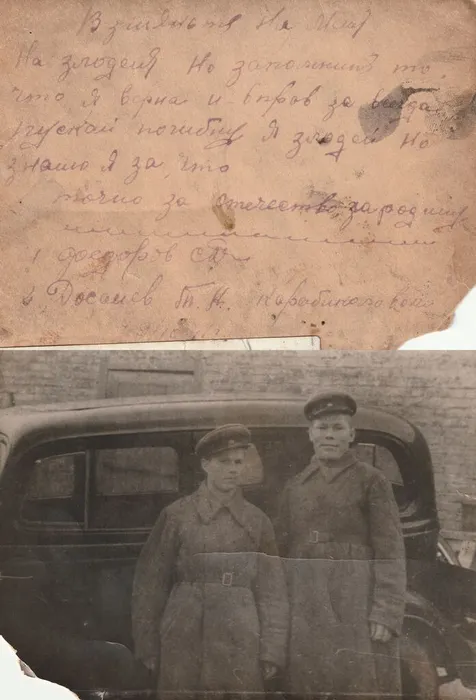 Взгляньте на меня
На злодея но запомните то,
что я верна и вправ за всегда
пускай погибну я злодей но
знаю я за, что
точно за отечество, за родину
1 Федоров С
2 Досалиев Т. Н.